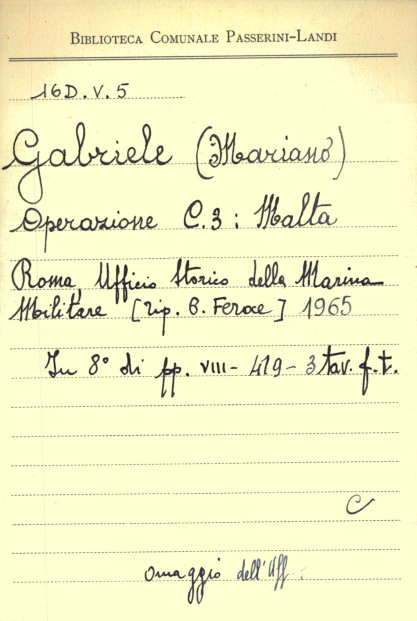 BIBLIOTECA COMUNALE PASSERINI-LANDI
16D.V.5
Gabriele (Mariano)
Operazione C.3: Malta
Roma, Ufficio Storico della Marina
Militare [Tip. B. Feroce] 1965
In 8° di pp. VIII-419-3 tav. f.t.
C
Omaggio dell'Uff.